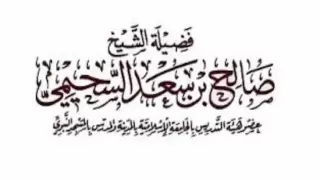 فضيلة الشيخ
صالح بن سعد السحيمي
عضو هيئة التدريس بالجامعة الإسلامية بالمدينة والمدرس بالمسجد النبوي